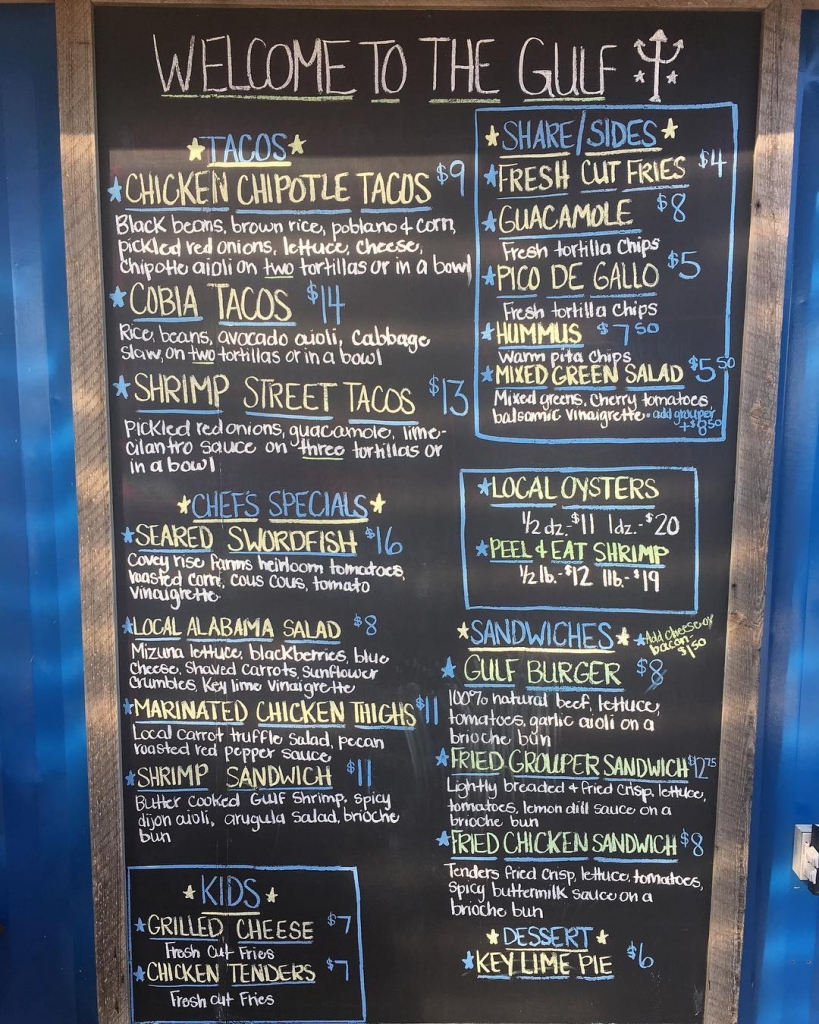 WELCOME TO THE GULF
TACOS
CHICKEN CHIPOTLE TACOS $9
Black beans, brown rice, poblano & corn,
pickled red onions, lettuce, cheese,
Chipotle aioli on two tortillas or in a bowl
COBIA TACOS $14
Rice, beans, avocado aioli, Cabbage
slaw, on two tortillas or in a bowl
SHRIMP STREET TACOS $13
Pickled red onions, guacamole, lime-
cilantro sauce on three tortillas or
in a bowl
CHEF'S SPECIALS
SEARED SWORDFISH $16
Covey rise farms heirloom tomatoes,
roasted corn, cous cous, tomato
vinaigrette
LOCAL ALABAMA SALAD $8
Mizuna lettuce, blackberries, blue
Cheese, Shaved Carrots, Sunflower
Crumbles, Key lime Vinaigrette
MARINATED CHICKEN THIGHS $11
Local carrot truffle Salad, pecan
roasted red pepper sauce
SHRIMP SANDWICH $11
Butter cooked Gulf Shrimp, spicy
dijon aioli, arugula salad, brioche
bun
KIDS
GRILLED CHEESE $7
Fresh Cut Fries
CHICKEN TENDERS $7
Fresh cut Fries
SHARE/SIDES
FRESH CUT FRIES $4
GUACAMOLE $8
Fresh tortilla Chips
PICO DE GALLO $5
Fresh tortilla Chips
HUMMUS $7 50
Warm pita Chips
MIXED GREEN SALAD $5 50
Mixed greens, Cherry tomatoes,
balsamic vinaigrette · add grouper
+$8 50
LOCAL OYSTERS
1/2 dz.-$11 1dz.-$20
PEEL & EAT SHRIMP
1/2 lb.-$12 1lb.-$19
SANDWICHES
Add cheese or
bacon-
$1 50
GULF BURGER $8
100% natural beef, lettuce,
tomatoes, garlic aioli on a
brioche bun
FRIED GROUPER SANDWICH $12 75
Lightly breaded & fried Crisp, lettuce,
tomatoes, lemon dill sauce on a
brioche bun
FRIED CHICKEN SANDWICH $8
Tenders fried Crisp, lettuce, tomatoes,
spicy buttermilk sauce on a
brioche bun
DESSERT
KEY LIME PIE $6